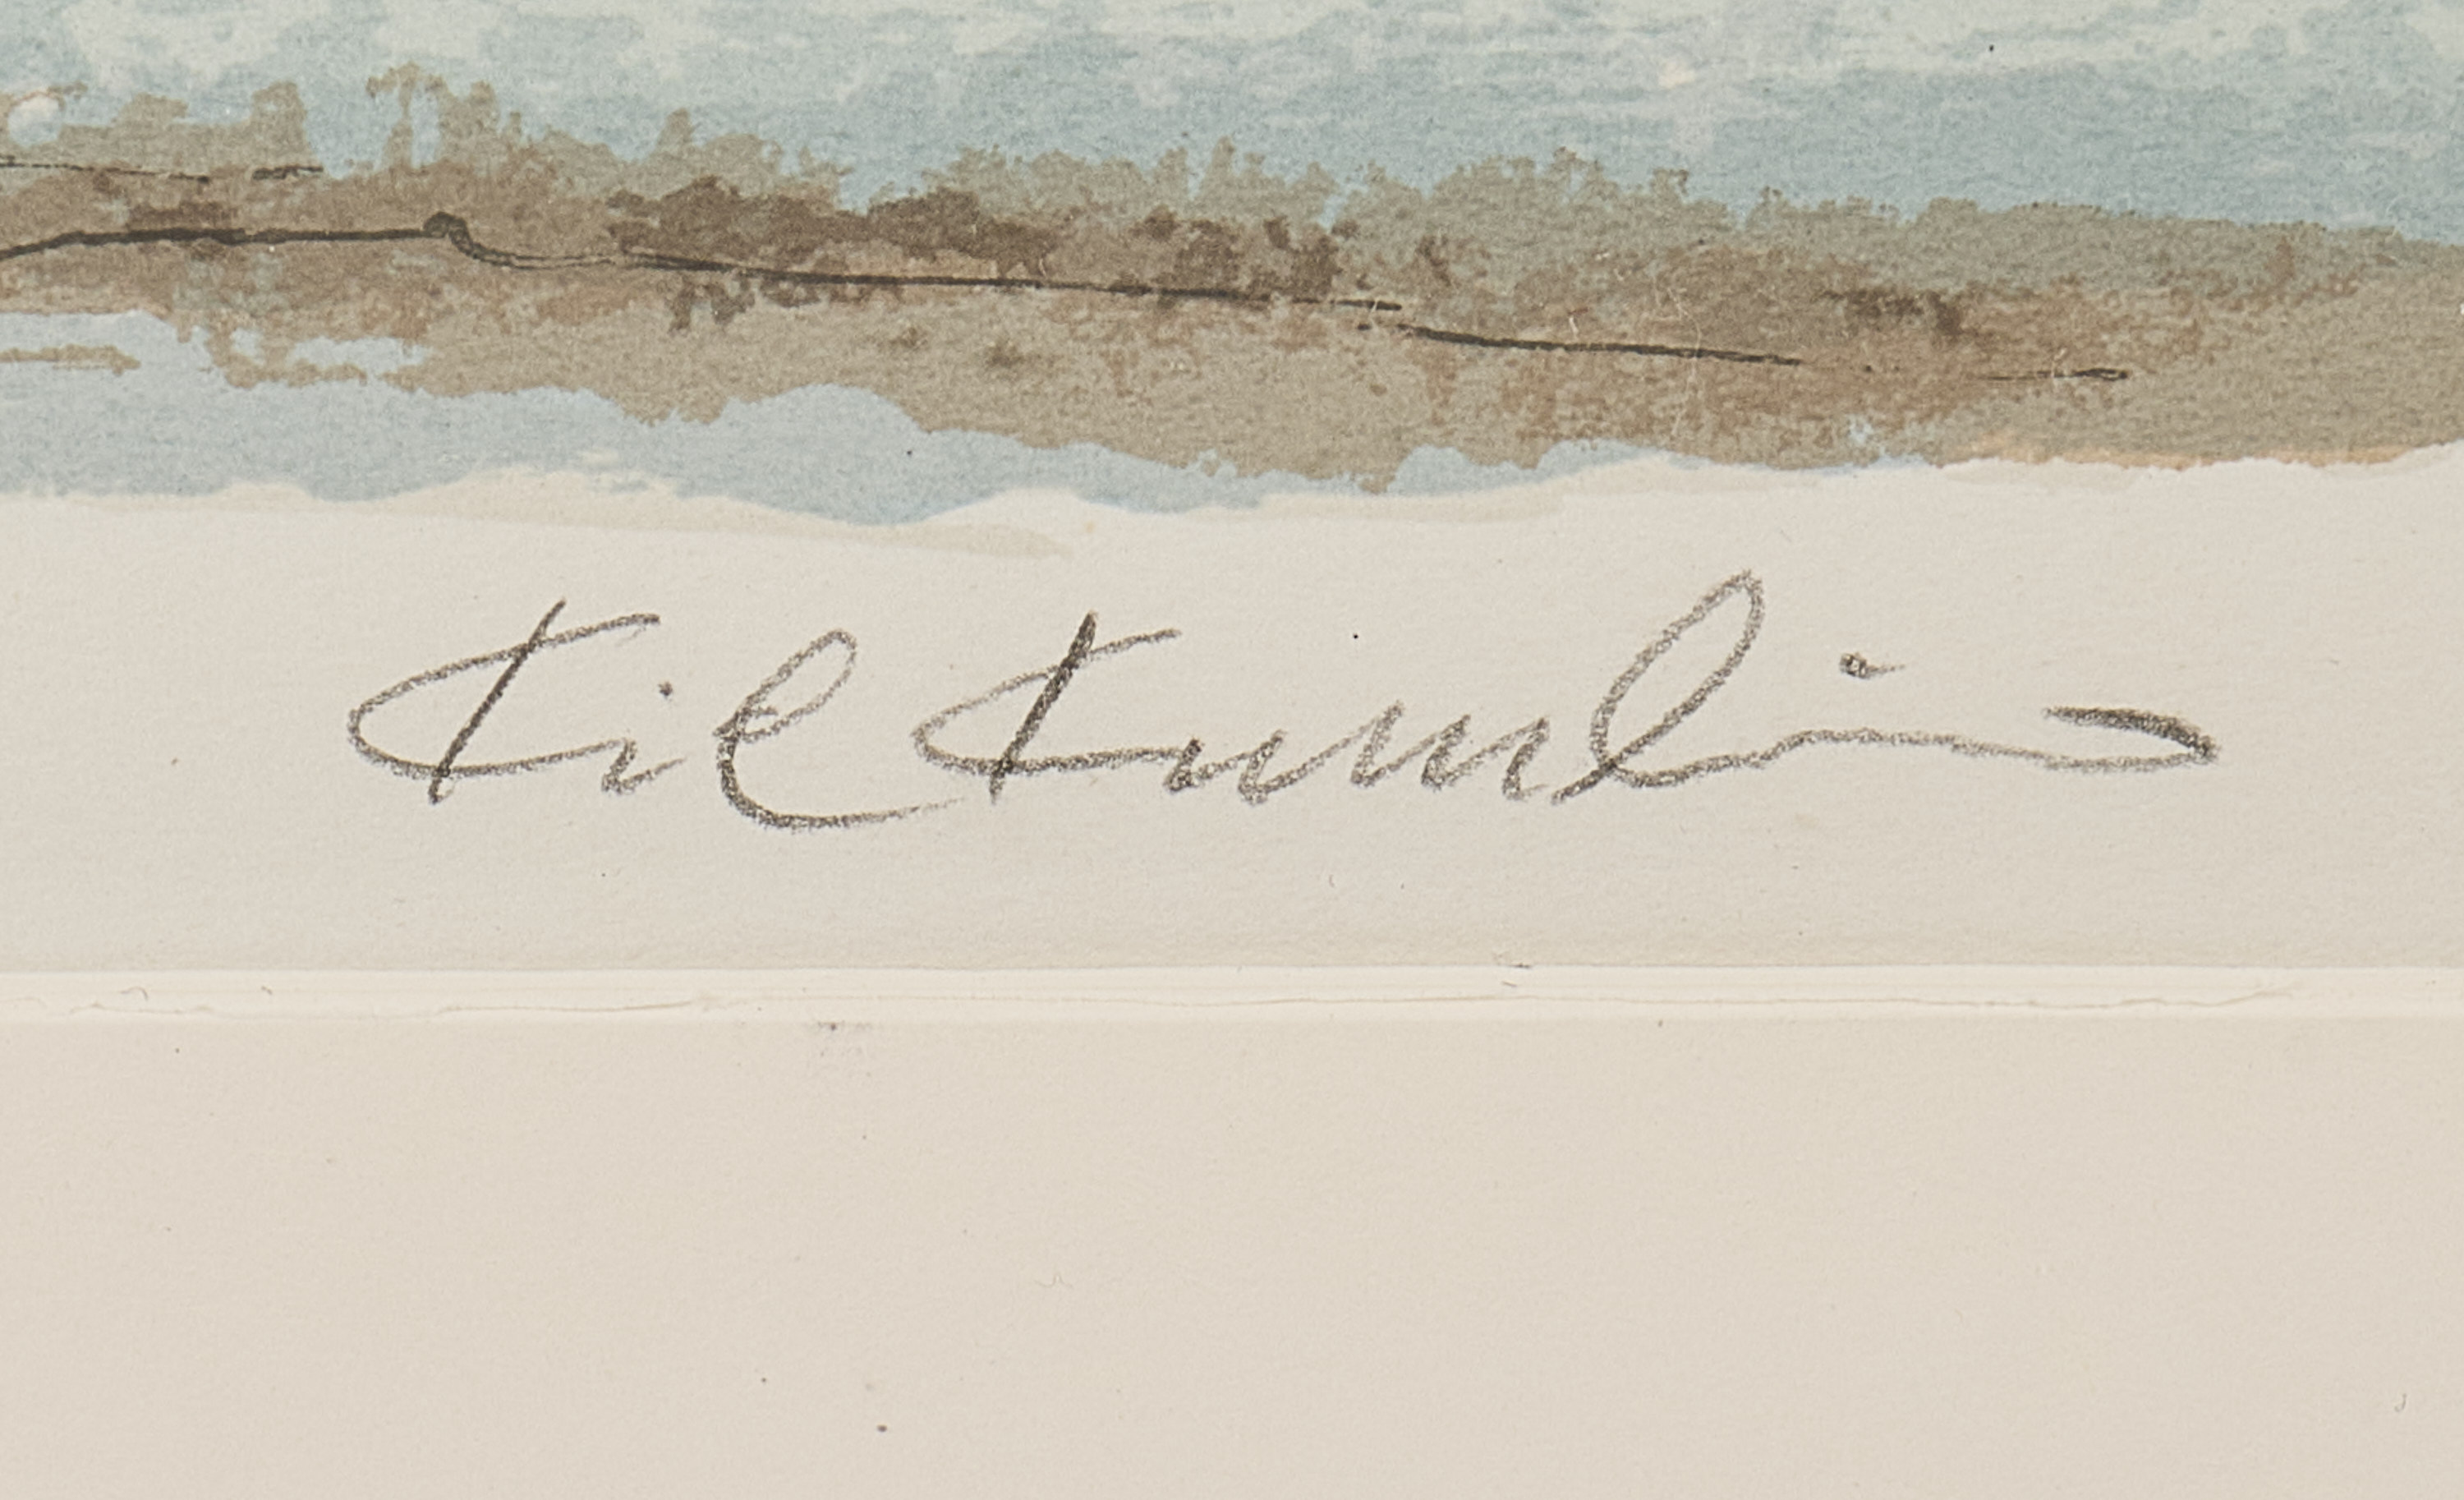 Kil Kumlin